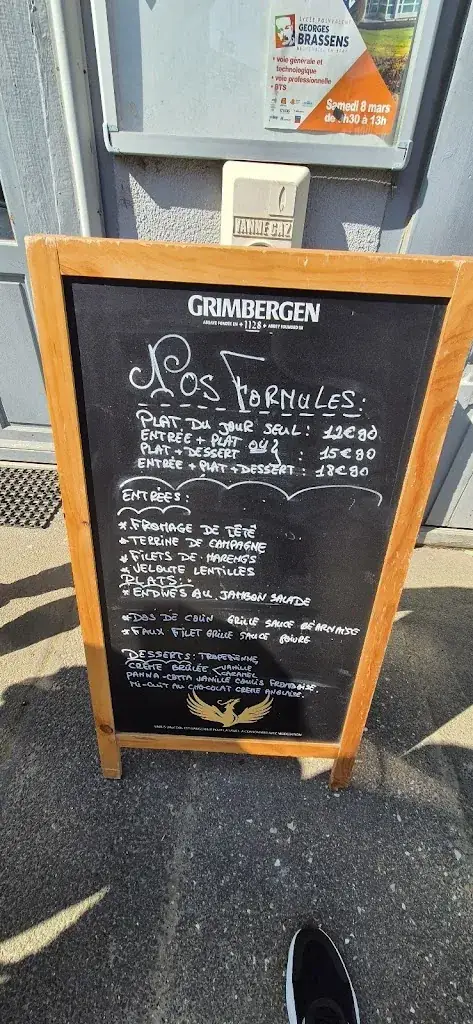 LYCÉE POLYVALENT
GEORGES
BRASSENS
• voie générale et
technologique
• voie professionnelle
• BTS
Samedi 8 mars
de 9h30 à 13h
VANNE GAZ
GRIMBERGEN
ABBAYE FONDÉE EN 1128 ABBEY FOUNDED IN
Nos FORMULES:
PLAT DU JOUR SEUL: 12€90
ENTRÉE + PLAT OU
PLAT + DESSERT : 15€90
ENTRÉE + PLAT + DESSERT : 18€90
ENTRÉES:
* FROMAGE DE TÊTE
* TERRINE DE CAMPAGNE
* FILETS DE HARENGS
* VELOUTE LENTILLES
PLATS:
* ENDIVES AU JAMBON SALADE
* DOS DE COLIN GRILLE SAUCE BÉARNAISE
* FAUX FILET GRILLE SAUCE POIVRE
DESSERTS: TROPEZIENNE,
CRÈME BRÛLÉE VANILLE
CARAMEL
PANNA-COTTA VANILLE COULIS FRAMBOISE.
MI-CUIT AU CHOCOLAT CRÈME ANGLAISE.
L'ABUS D'ALCOOL EST DANGEREUX POUR LA SANTÉ. À CONSOMMER AVEC MODÉRATION